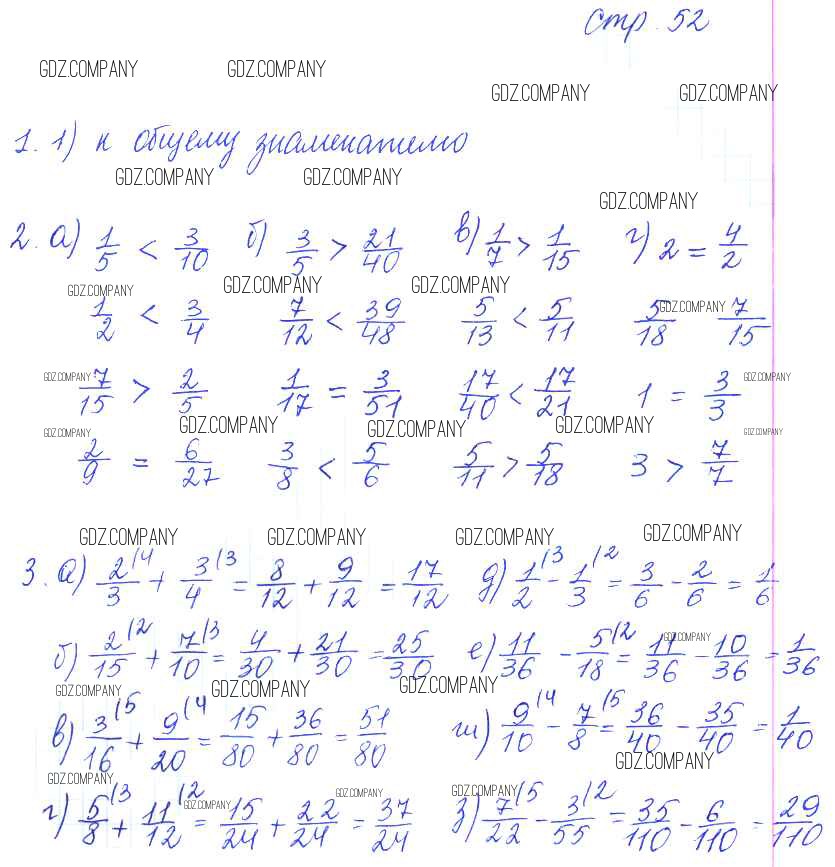 стр. 52
GDZ.COMPANY GDZ.COMPANY
GDZ.COMPANY GDZ.COMPANY
1. 1) к общему знаменателю
GDZ.COMPANY GDZ.COMPANY
GDZ.COMPANY
2. а) 1/5 < 3/10 б) 3/5 > 21/40 в) 1/7 > 1/15 г) 2 = 4/2
GDZ.COMPANY GDZ.COMPANY GDZ.COMPANY GDZ.COMPANY
1/2 < 3/4 7/12 < 39/48 5/13 < 5/11 5/18 7/15
GDZ.COMPANY GDZ.COMPANY
7/15 > 2/5 1/17 = 3/51 17/40 < 17/21 1 = 3/3
GDZ.COMPANY GDZ.COMPANY GDZ.COMPANY GDZ.COMPANY GDZ.COMPANY
2/9 = 6/27 3/8 < 5/6 5/11 > 5/18 3 > 7/7
GDZ.COMPANY GDZ.COMPANY GDZ.COMPANY GDZ.COMPANY
3. а) 2/3 (4 + 3/4 (3 = 8/12 + 9/12 = 17/12 д) 1/2 (3 - 1/3 (2 = 3/6 - 2/6 = 1/6
б) 2/15 (2 + 7/10 (3 = 4/30 + 21/30 = 25/30 е) 11/36 - 5/18 (2 = 11/36 - 10/36 = 1/36
GDZ.COMPANY
GDZ.COMPANY GDZ.COMPANY GDZ.COMPANY
в) 3/16 (5 + 9/20 (4 = 15/80 + 36/80 = 51/80 ж) 9/10 (4 - 7/8 (5 = 36/40 - 35/40 = 1/40
GDZ.COMPANY GDZ.COMPANY
GDZ.COMPANY GDZ.COMPANY GDZ.COMPANY
г) 5/8 (3 + 11/12 (2 = 15/24 + 22/24 = 37/24 з) 7/22 (5 - 3/55 (2 = 35/110 - 6/110 = 29/110